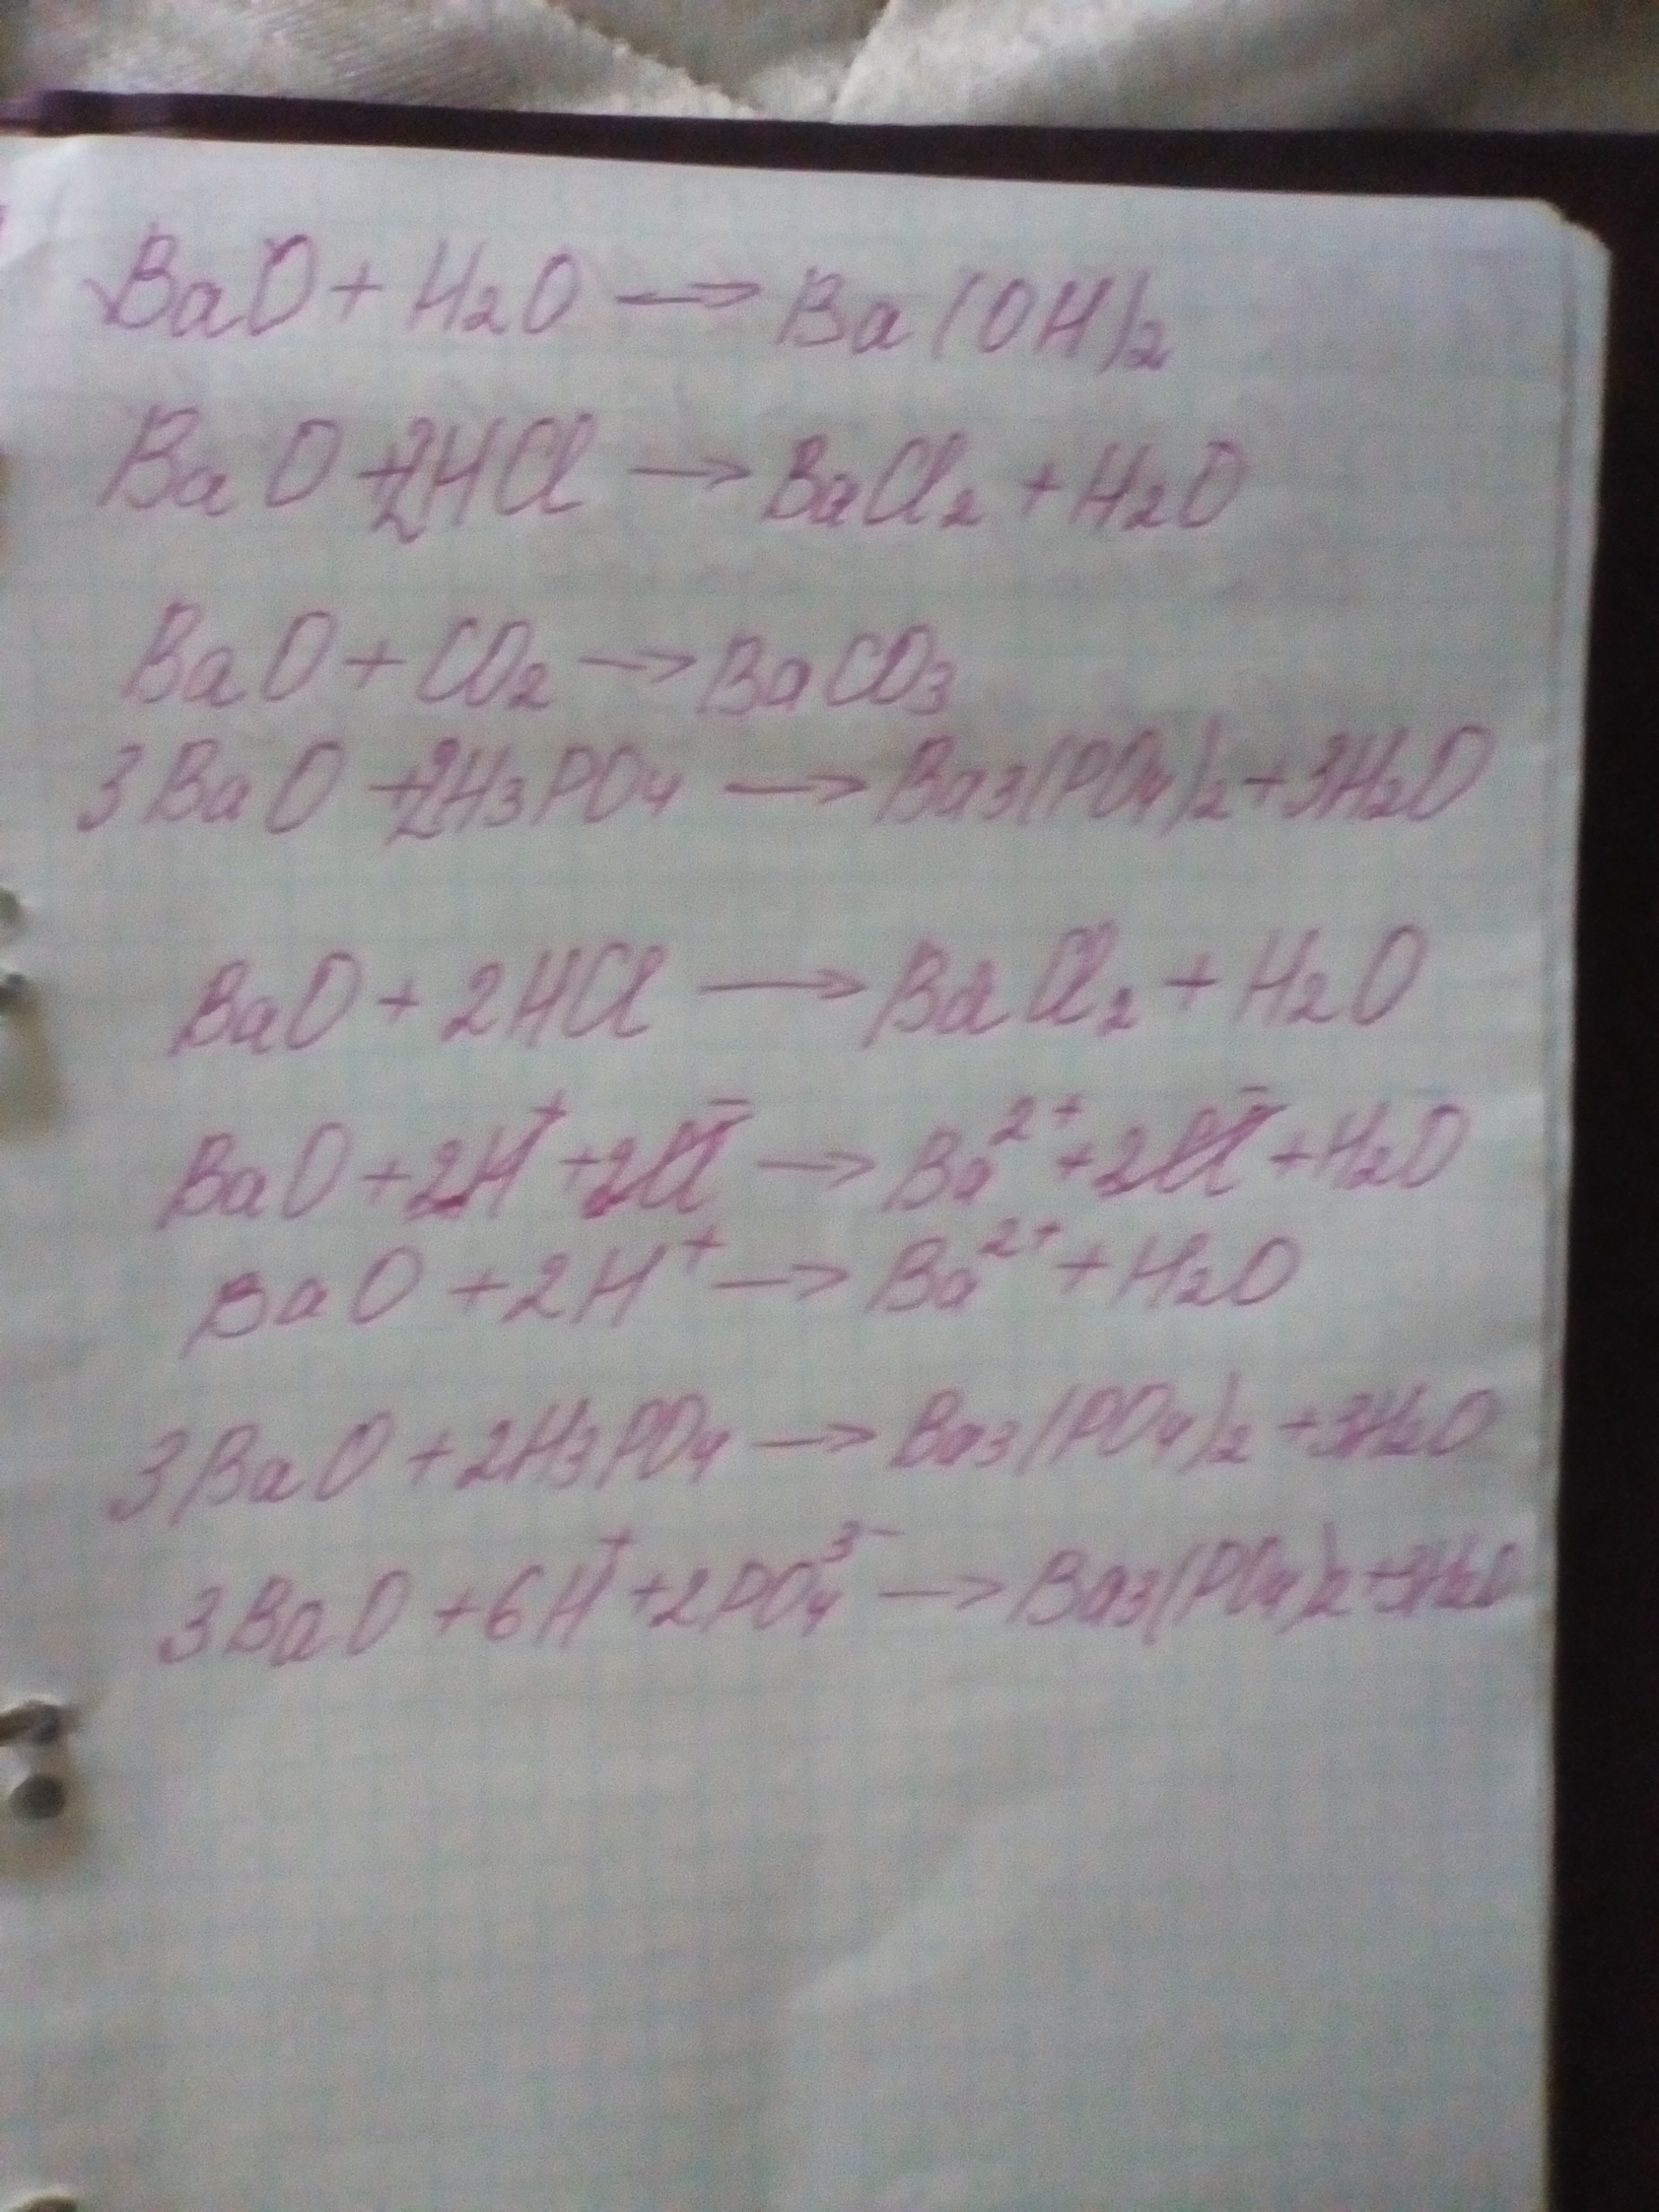 BaO + H2O → Ba(OH)2
BaO + 2HCl → BaCl2 + H2O
BaO + CO2 → BaCO3
3BaO + 2H3PO4 → Ba3(PO4)2 + 3H2O
BaO + 2HCl → BaCl2 + H2O
BaO + 2H⁺ + 2Cl⁻ → Ba²⁺ + 2Cl⁻ + H2O
BaO + 2H⁺ → Ba²⁺ + H2O
3BaO + 2H3PO4 → Ba3(PO4)2 + 3H2O
3BaO + 6H⁺ + 2PO4³⁻ → Ba3(PO4)2 + 3H2O